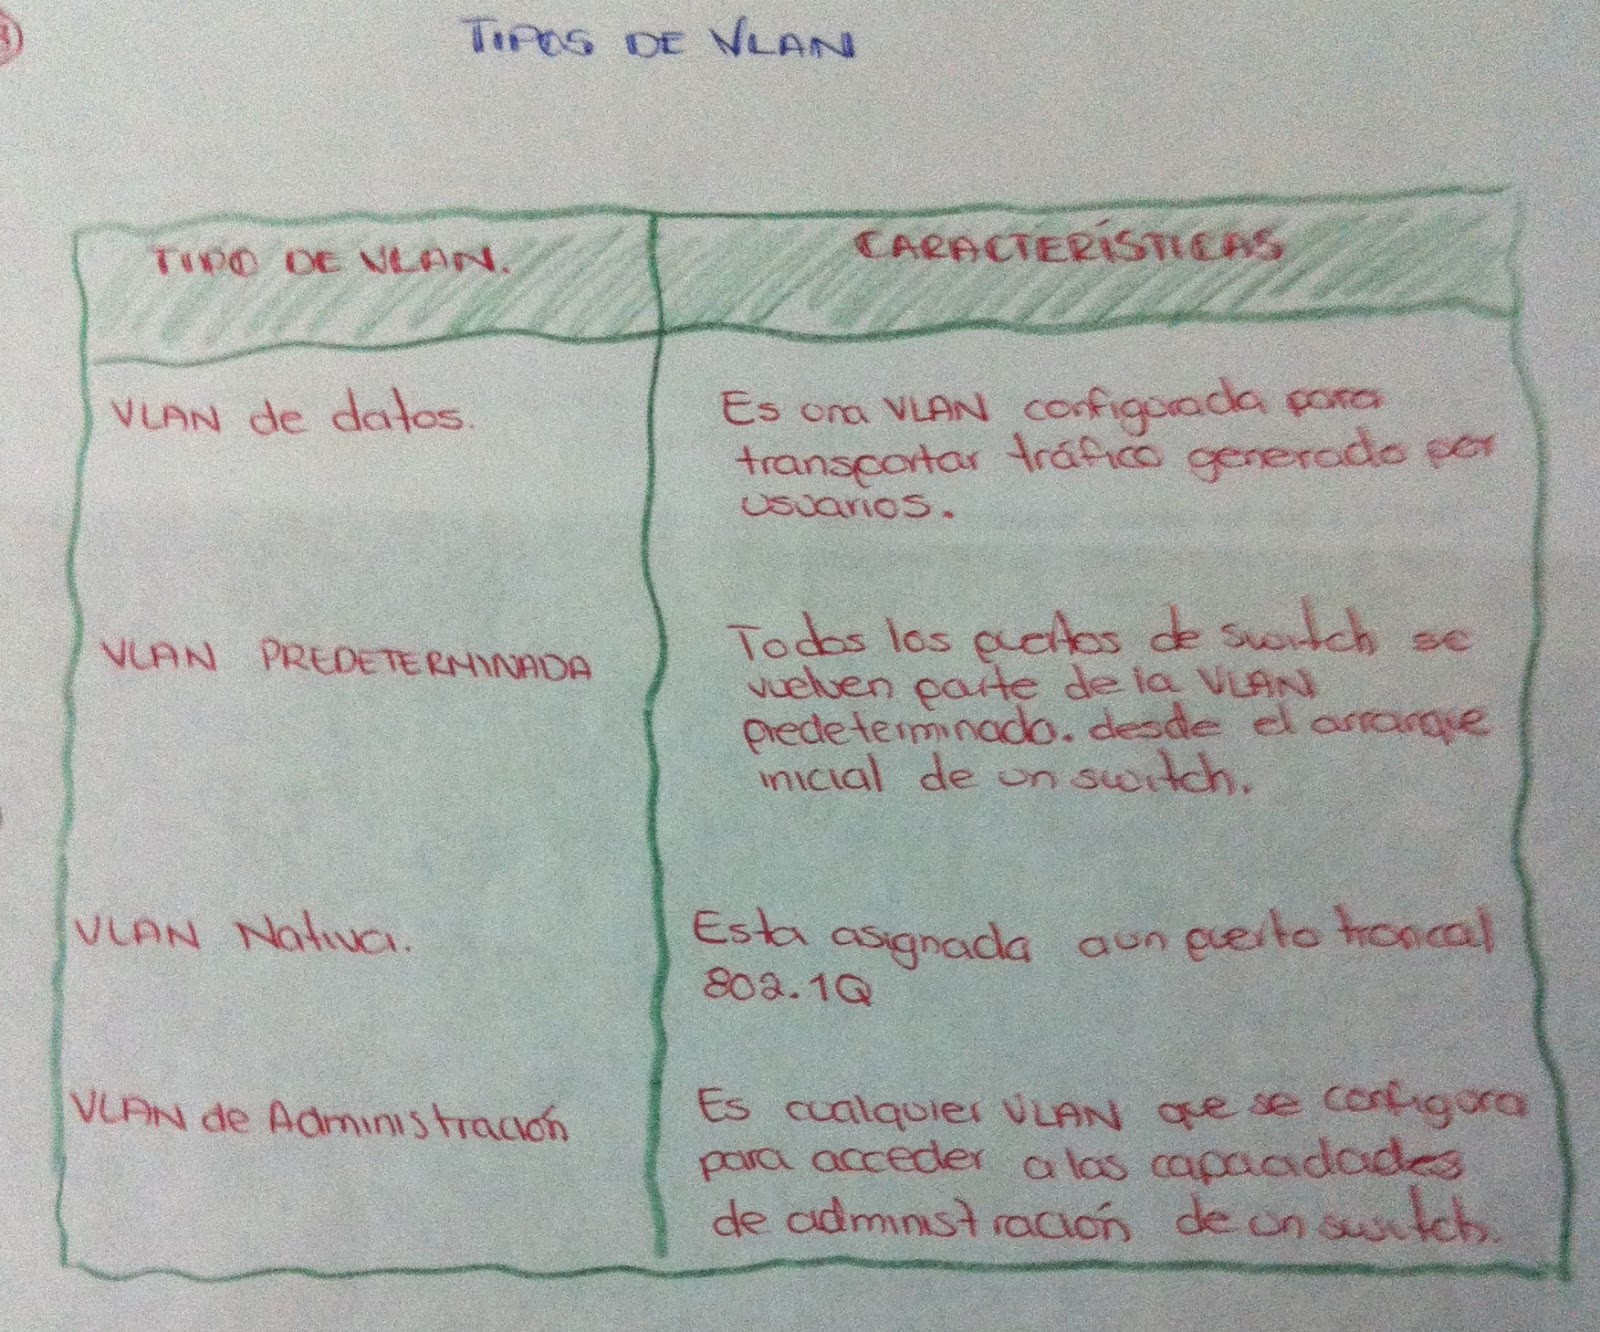 TIPOS DE VLAN
TIPO DE VLAN.
CARACTERÍSTICAS
VLAN de datos.
Es una VLAN configurada para
transportar tráfico generado por
usuarios.
VLAN PREDETERMINADA
Todos los puertos de switch se
vuelven parte de la VLAN
predeterminado. desde el arranque
inicial de un switch.
VLAN Nativa.
Esta asignada a un puerto troncal
802.1Q
VLAN de Administración
Es cualquier VLAN que se configura
para acceder a las capacidades
de administración de un switch.